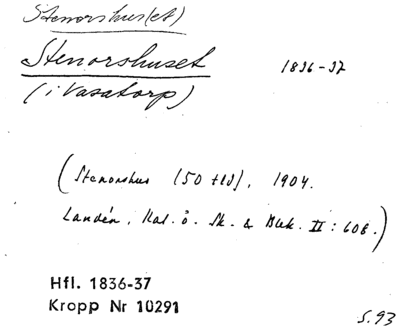 Stenorshus(et)
Stenorshuset 1836-37
(i Vasatorp)
(Stenorshus [50 tld], 1904.
Landén, Kal. ö. Sk. & Blek. II: 608.)
Hfl. 1836-37
Kropp Nr 10291
S. 93